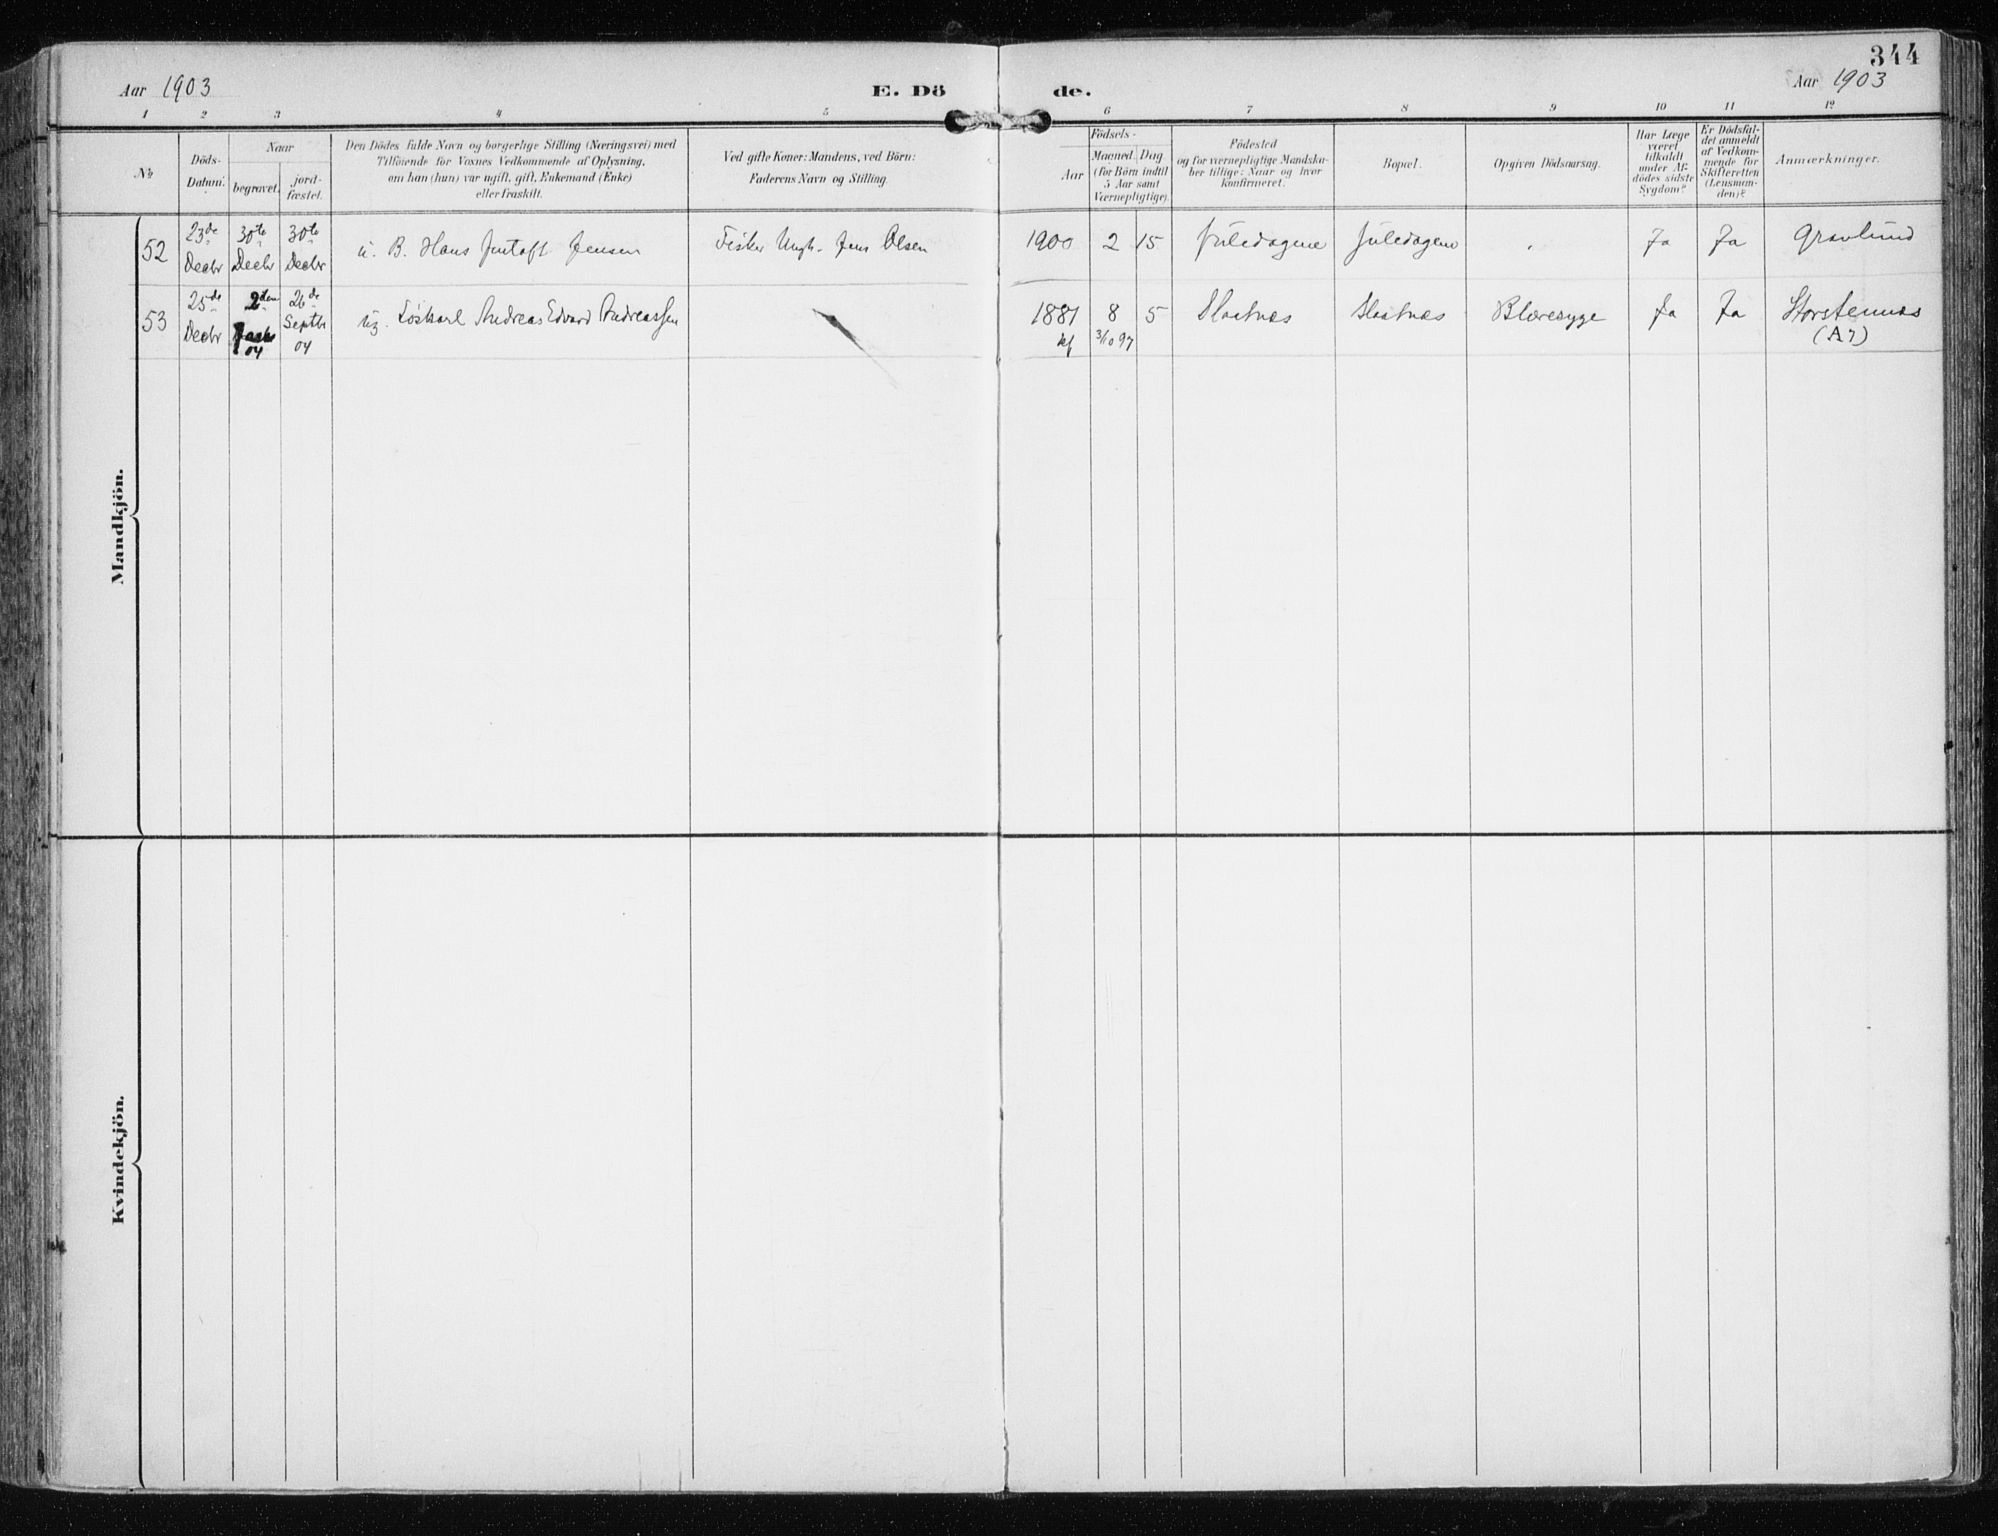 344
Aar 1903
E. Dö
de.
Aar 1903
1 2 3 4 5 6 7 8 9 10 11 12
№
Döds-
Datum.
Naar
begravet.
jord-
fæstet.
Den Dödes fulde Navn og borgerlige Stilling (Næringsvei) med
Tilföiende for Voxnes Vedkommende af Oplysning,
om han (hun) var ugift, gift, Enkemand (Enke)
eller fraskilt.
Ved gifte Koner: Mandens, ved Börn:
Faderens Navn og Stilling.
Födsels-
Aar
Maaned Dag
(for Börn indtil
5 Aar samt
Værnepligtige).
Födested
og for værnepligtige Mandska-
ber tillige: Naar og hvor
konfirmeret.
Bopæl.
Opgiven Dödsaarsag.
Har Læge
været
tilkaldt
under Af-
dödes sidste
Sygdom?
Er Dödsfal-
det anmeldt
af Vedkom-
mende for
Skifteretten
(Lensman-
den)?
Anmærkninger.
Mandkjön.
52
23de
Decbr
30te
Decbr
30te
Decbr
u. B. Hans Jentoft Jensen
Fisker Ungk. Jens Olsen
1900 2 15
Juledagene
Juledagene
Ja
Ja
Gravlund
53
25de
Decbr
2den
04
26de
Septbr
04
ug. Löskarl Andreas Edvard Andreassen
1881 8 5
kf 3/10 97
Slaatnæs
Slaatnæs
Blæresyge
Ja
Ja
Storstennæs
(A7)
Kvindekjön.